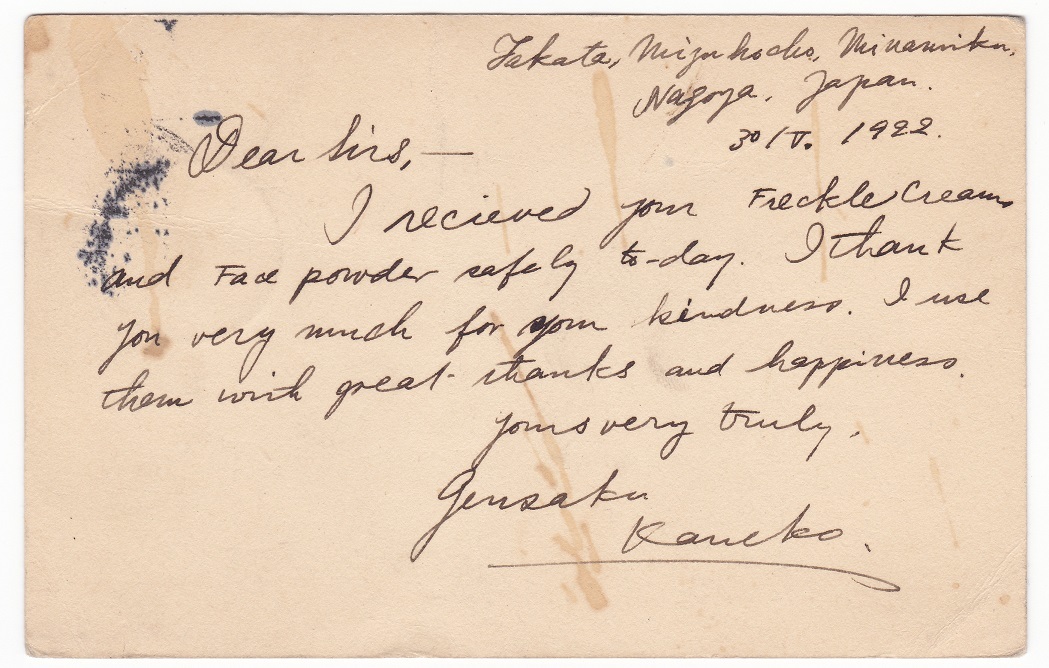 Takata, Mizuhocho, Minamiku,
Nagoya, Japan.
30/V. 1922.
Dear Sirs, —
I recieved your Freckle Creams
and Face powder safely to-day. I thank
you very much for your kindness. I use
them with great thanks and happiness.
Yours very truly,
Gensaku
Kaneko.